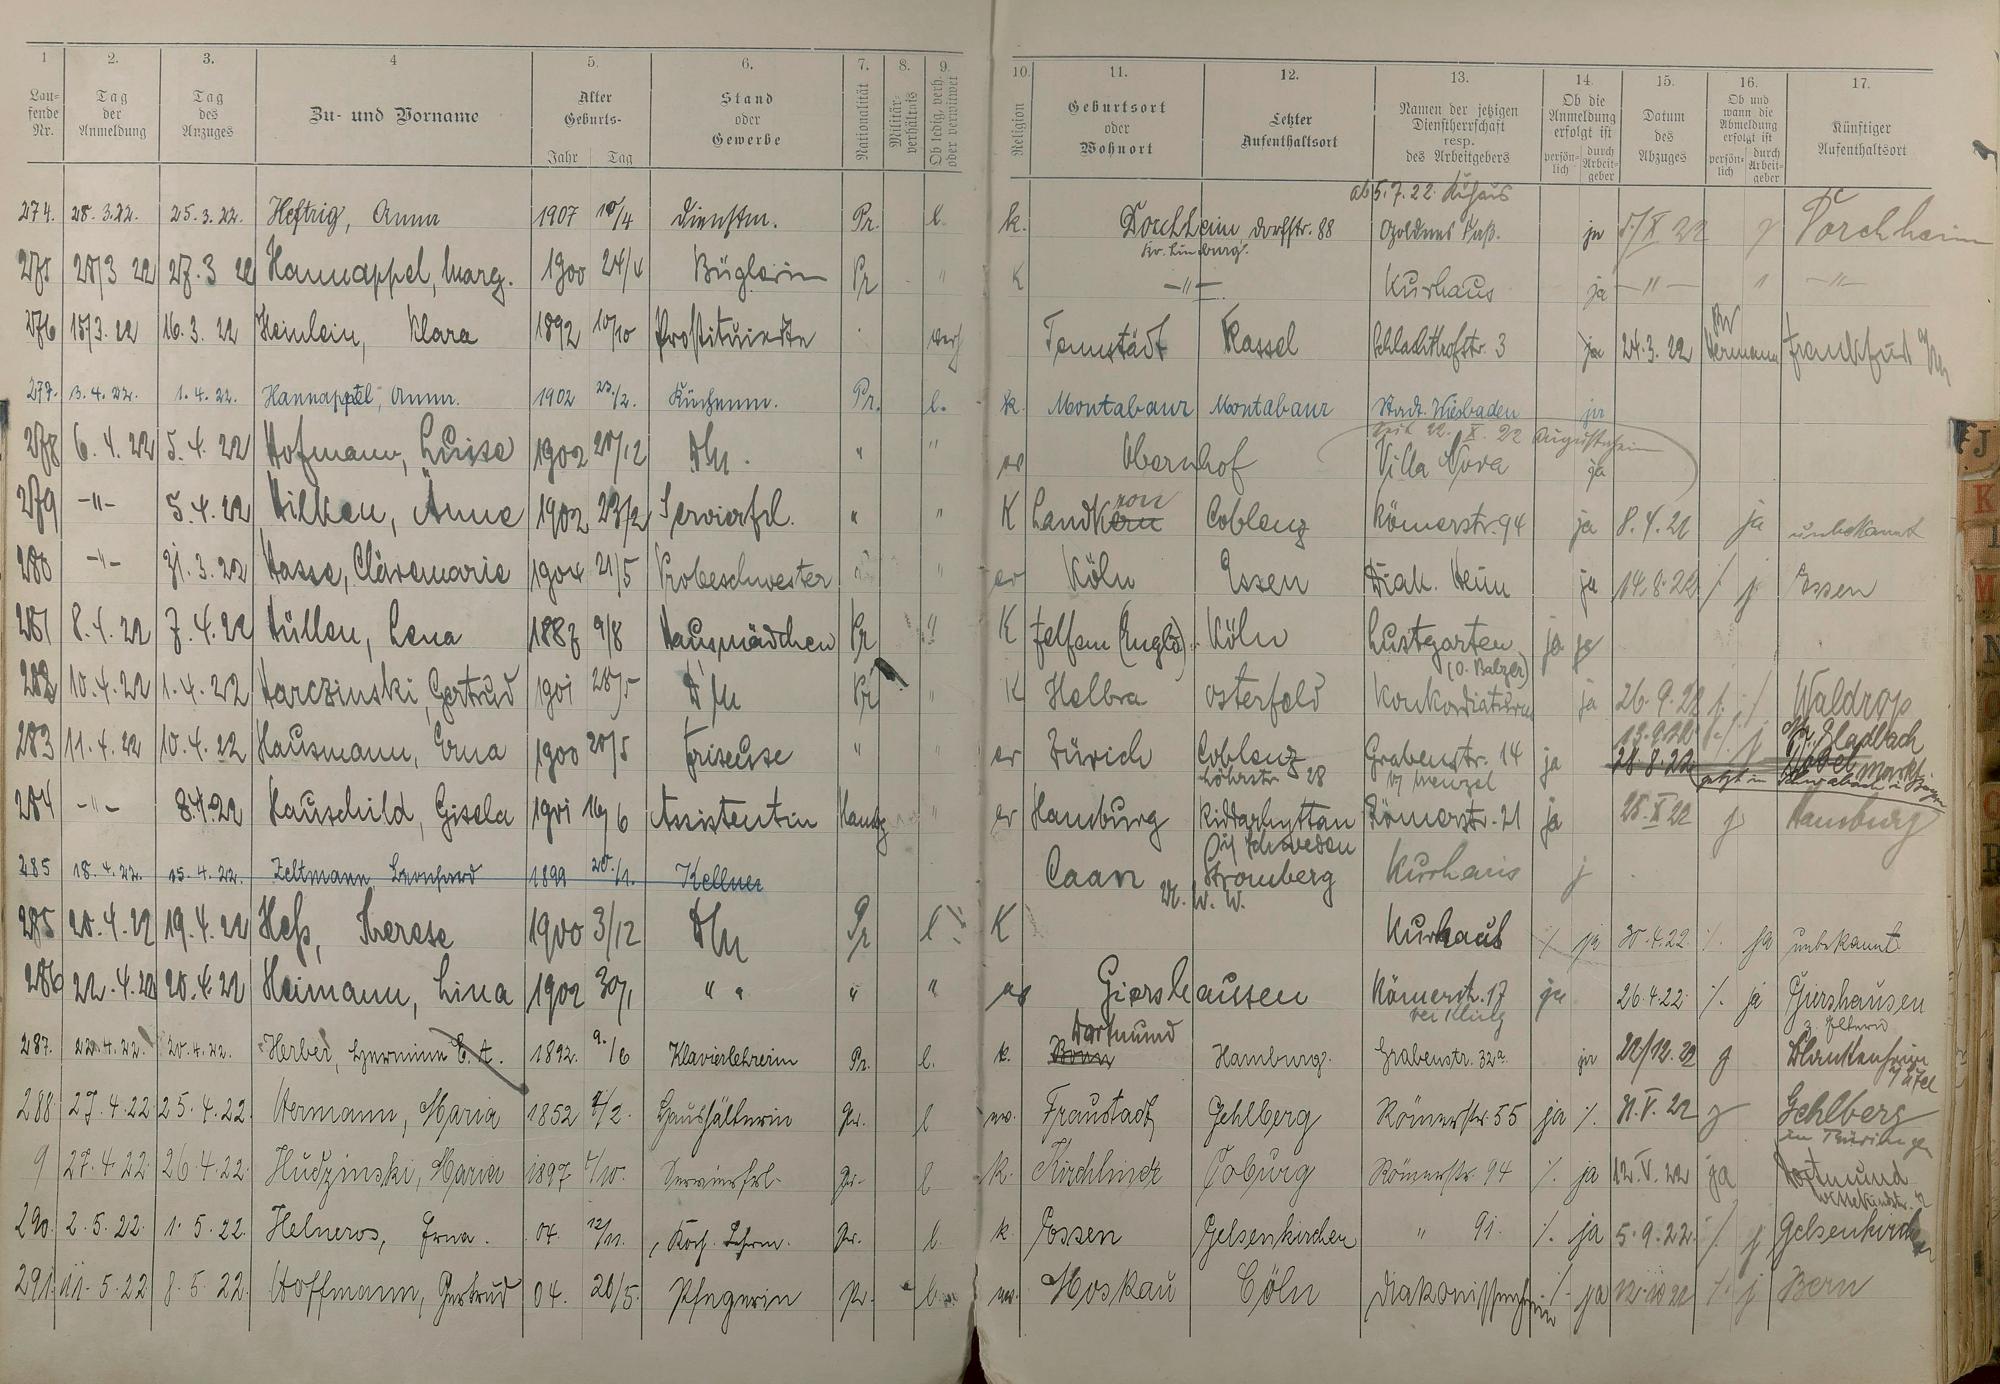 1 2. 3. 4 5. 6. 7. 8. 9. 10. 11. 12. 13. 14. 15. 16. 17.
Lau-
fende
Nr.
Tag
der
Anmeldung
Tag
des
Anzuges
Zu- und Vorname
Alter
Geburts-
Jahr Tag
Stand
oder
Gewerbe
Nationalität
Militär-
verhältnis
Ob ledig, verh.
oder verwitwet
Religion
Geburtsort
oder
Wohnort
Letzter
Aufenthaltsort
Namen der jetzigen
Dienstherrschaft
resp.
des Arbeitgebers
Ob die
Anmeldung
erfolgt ist
persön-
lich
durch
Arbeit-
geber
Datum
des
Abzuges
Ob und
wann die
Abmeldung
erfolgt ist
persön-
lich
durch
Arbeit-
geber
Künftiger
Aufenthaltsort
ab 5.7.22. Kurhaus
274. 28.3.22. 25.3.22. Heftrig, Anna 1907 10/4 Dienstm. Pr. l. k. Dorchheim Dorfstr. 88 Goldnes Faß. ja 5/X 22 Dorchheim
Kr. Limburg.
275 28/3 22 27.3 22 Hannappel, Marg. 1900 24/4 Büglerin Pr " K -"- Kurhaus ja -"- " -"-
276 18/3.22 16.3.22 Heinlein, Klara 1892 10/10 Prostituierte Tennstädt Kassel Schlachthofstr. 3 ja 24.3.22 Hermann Frankfurt
277. 3.4.22. 1.4.22. Hannappel, Anna. 1902 23./2. Küchenm. Pr. l. k. Montabaur Montabaur Stadt. Wiesbaden ja
seit 22. X. 22 Augustaheim
278 6.4.22 5.4.22 Hofmann, Luise 1902 28/12 " " Obernhof Villa Nova ja
279 -"- 5.4.22 Hilken, Änne 1902 23/2 Servierfrl. " " K Landkron Coblenz Römerstr. 94 ja 8.4.22 ja unbekannt
280 -"- 31.3.22 Hasse, Cläremarie 1904 21/5 Probeschwester " " ev Köln Essen Diak. Heim ja 14.8.22 / j Essen
281 8.4.22 7.4.22 Hüllen, Lena 1887 9/8 Hausmädchen Pr " K Köln Lustgarten ja ja
(O. Balzer)
282 10.4.22 1.4.22 Harczinski, Gertrud 1901 28/5 Pr " K Helbra Osterfeld Konkordiaturm ja 26.9.22 Waldrop
283 11.4.22 10.4.22 Hausmann, Erna 1900 20/5 Friseuse " " ev Zürich Coblenz Grabenstr. 14 ja 28.8.22 Gladbach
Löhrstr 28 b/ Wenzel
284 -"- 8.4.22 Hauschild, Gisela 1901 16/6 Assistentin Hambg " ev Hamburg Riddarhyttan Römerstr. 21 ja 25.X 22 j Hamburg
in Schweden
285 18.4.22. 15.4.22. Zeltmann Leonhard 1899 Kellner Caan Stromberg Kurhaus j
W. W.
285 20.4.22 19.4.22 Heß, Therese 1900 3/12 Pr l K Kurhaus % ja 30.4.22. %. ja unbekannt
286 22.4.22 20.4.22 Heimann, Lina 1902 30/1 " " " " ev Giershausen Römerstr. 17 ja 26.4.22. %. ja Giershausen
bei Kling z. Eltern
Dortmund
287. 22.4.22. 20.4.22. Herber, Hermine E. A. 1892. 9./6 Klavierlehrerin Pr. l. k. Bonn Hamburg. Grabenstr. 32a. ja 22/12.22 j Blankenheim
i/ Eifel
288 27.4.22 25.4.22. Hermann, Maria 1852 Haushälterin Pr. l ev. Fraustadt Gehlberg Römerstr. 55 ja %. 31.V.22 j Gehlberg
in Thüringen
9 27.4.22 26.4.22. Hudzinski, Maria 1897 Servierfrl. Pr. l k. Kirchlinde Coburg Römerstr. 94 %. ja 12.V.22 ja Dortmund
290. 2.5.22. 1.5.22. Helneros, Erna. 04. 12/11. Koch. Lehrm. Pr. l. k. Essen Gelsenkirchen " 91. %. ja 5.9.22. %. j Gelsenkirchen
291. 11.5.22 8.5.22. Hoffmann, Gertrud 04. 20/5. Pflegerin Pr. l. ev. Moskau Cöln Diakonissenheim %. ja 12.10 22 %. j Bern
J
K
M
N
O
R